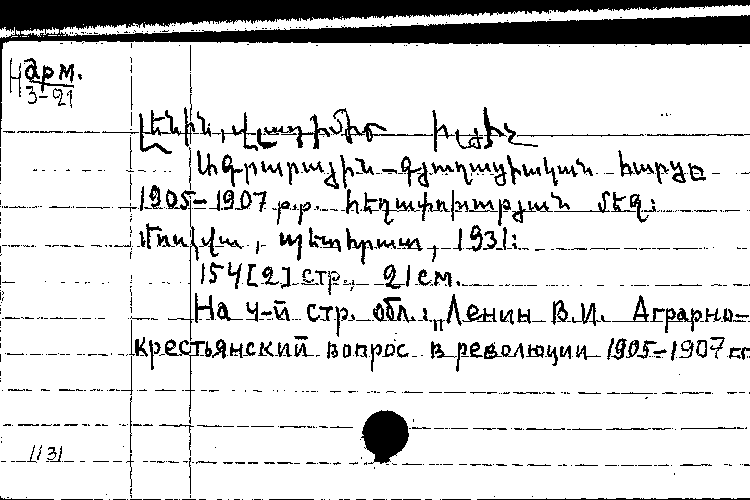 Нарм.
3-21
Լենին, Վլադիմիր Իլյիչ
Ագրարային-գյուղացիական հարցը
1905-1907 թ.թ. հեղափոխության մեջ:
Մոսկվա, պետհրատ, 1931:
154[2] стр., 21 см.
На 4-й стр. обл.: „Ленин В.И. Аграрно-
крестьянский вопрос в революции 1905-1907 гг
1131